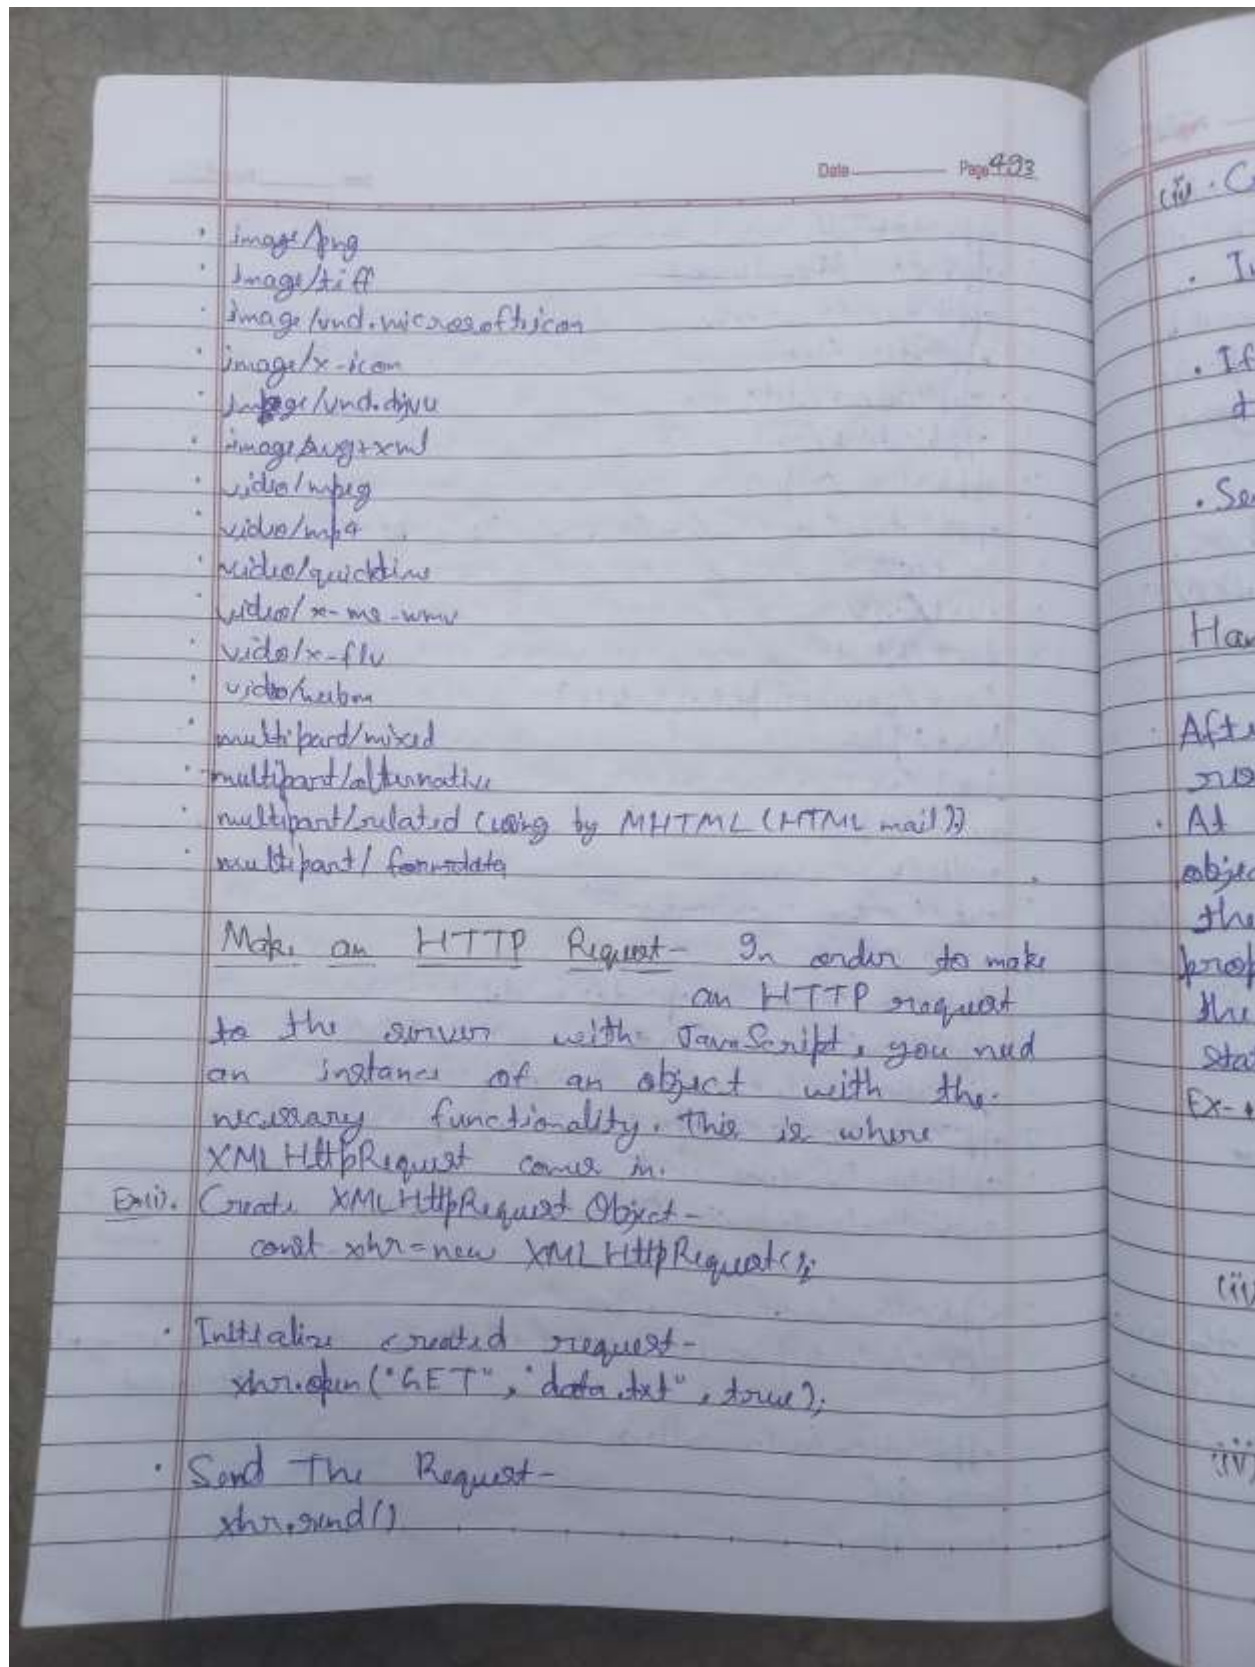 Date Page 493
• image/png
• image/tiff
• image/vnd.microsofticon
• image/x-icon
• image/vnd.djvu
• image/svg+xml
• video/mpeg
• video/mp4
• video/quicktime
• video/x-ms-wmv
• video/x-flv
• video/webm
• multipart/mixed
• multipart/alternative
• multipart/related (using by MHTML (HTML mail))
• multipart/formdata
Make an HTTP Request- In order to make
an HTTP request
to the server with JavaScript, you need
an instance of an object with the
necessary functionality. This is where
XMLHttpRequest comes in.
Ex(i). Create XMLHttpRequest Object-
const xhr=new XMLHttpRequest();
• Initialize created request-
xhr.open("GET", "data.txt", true);
• Send The Request-
xhr.send()
• If
After
• At
object
the
the
Ex-